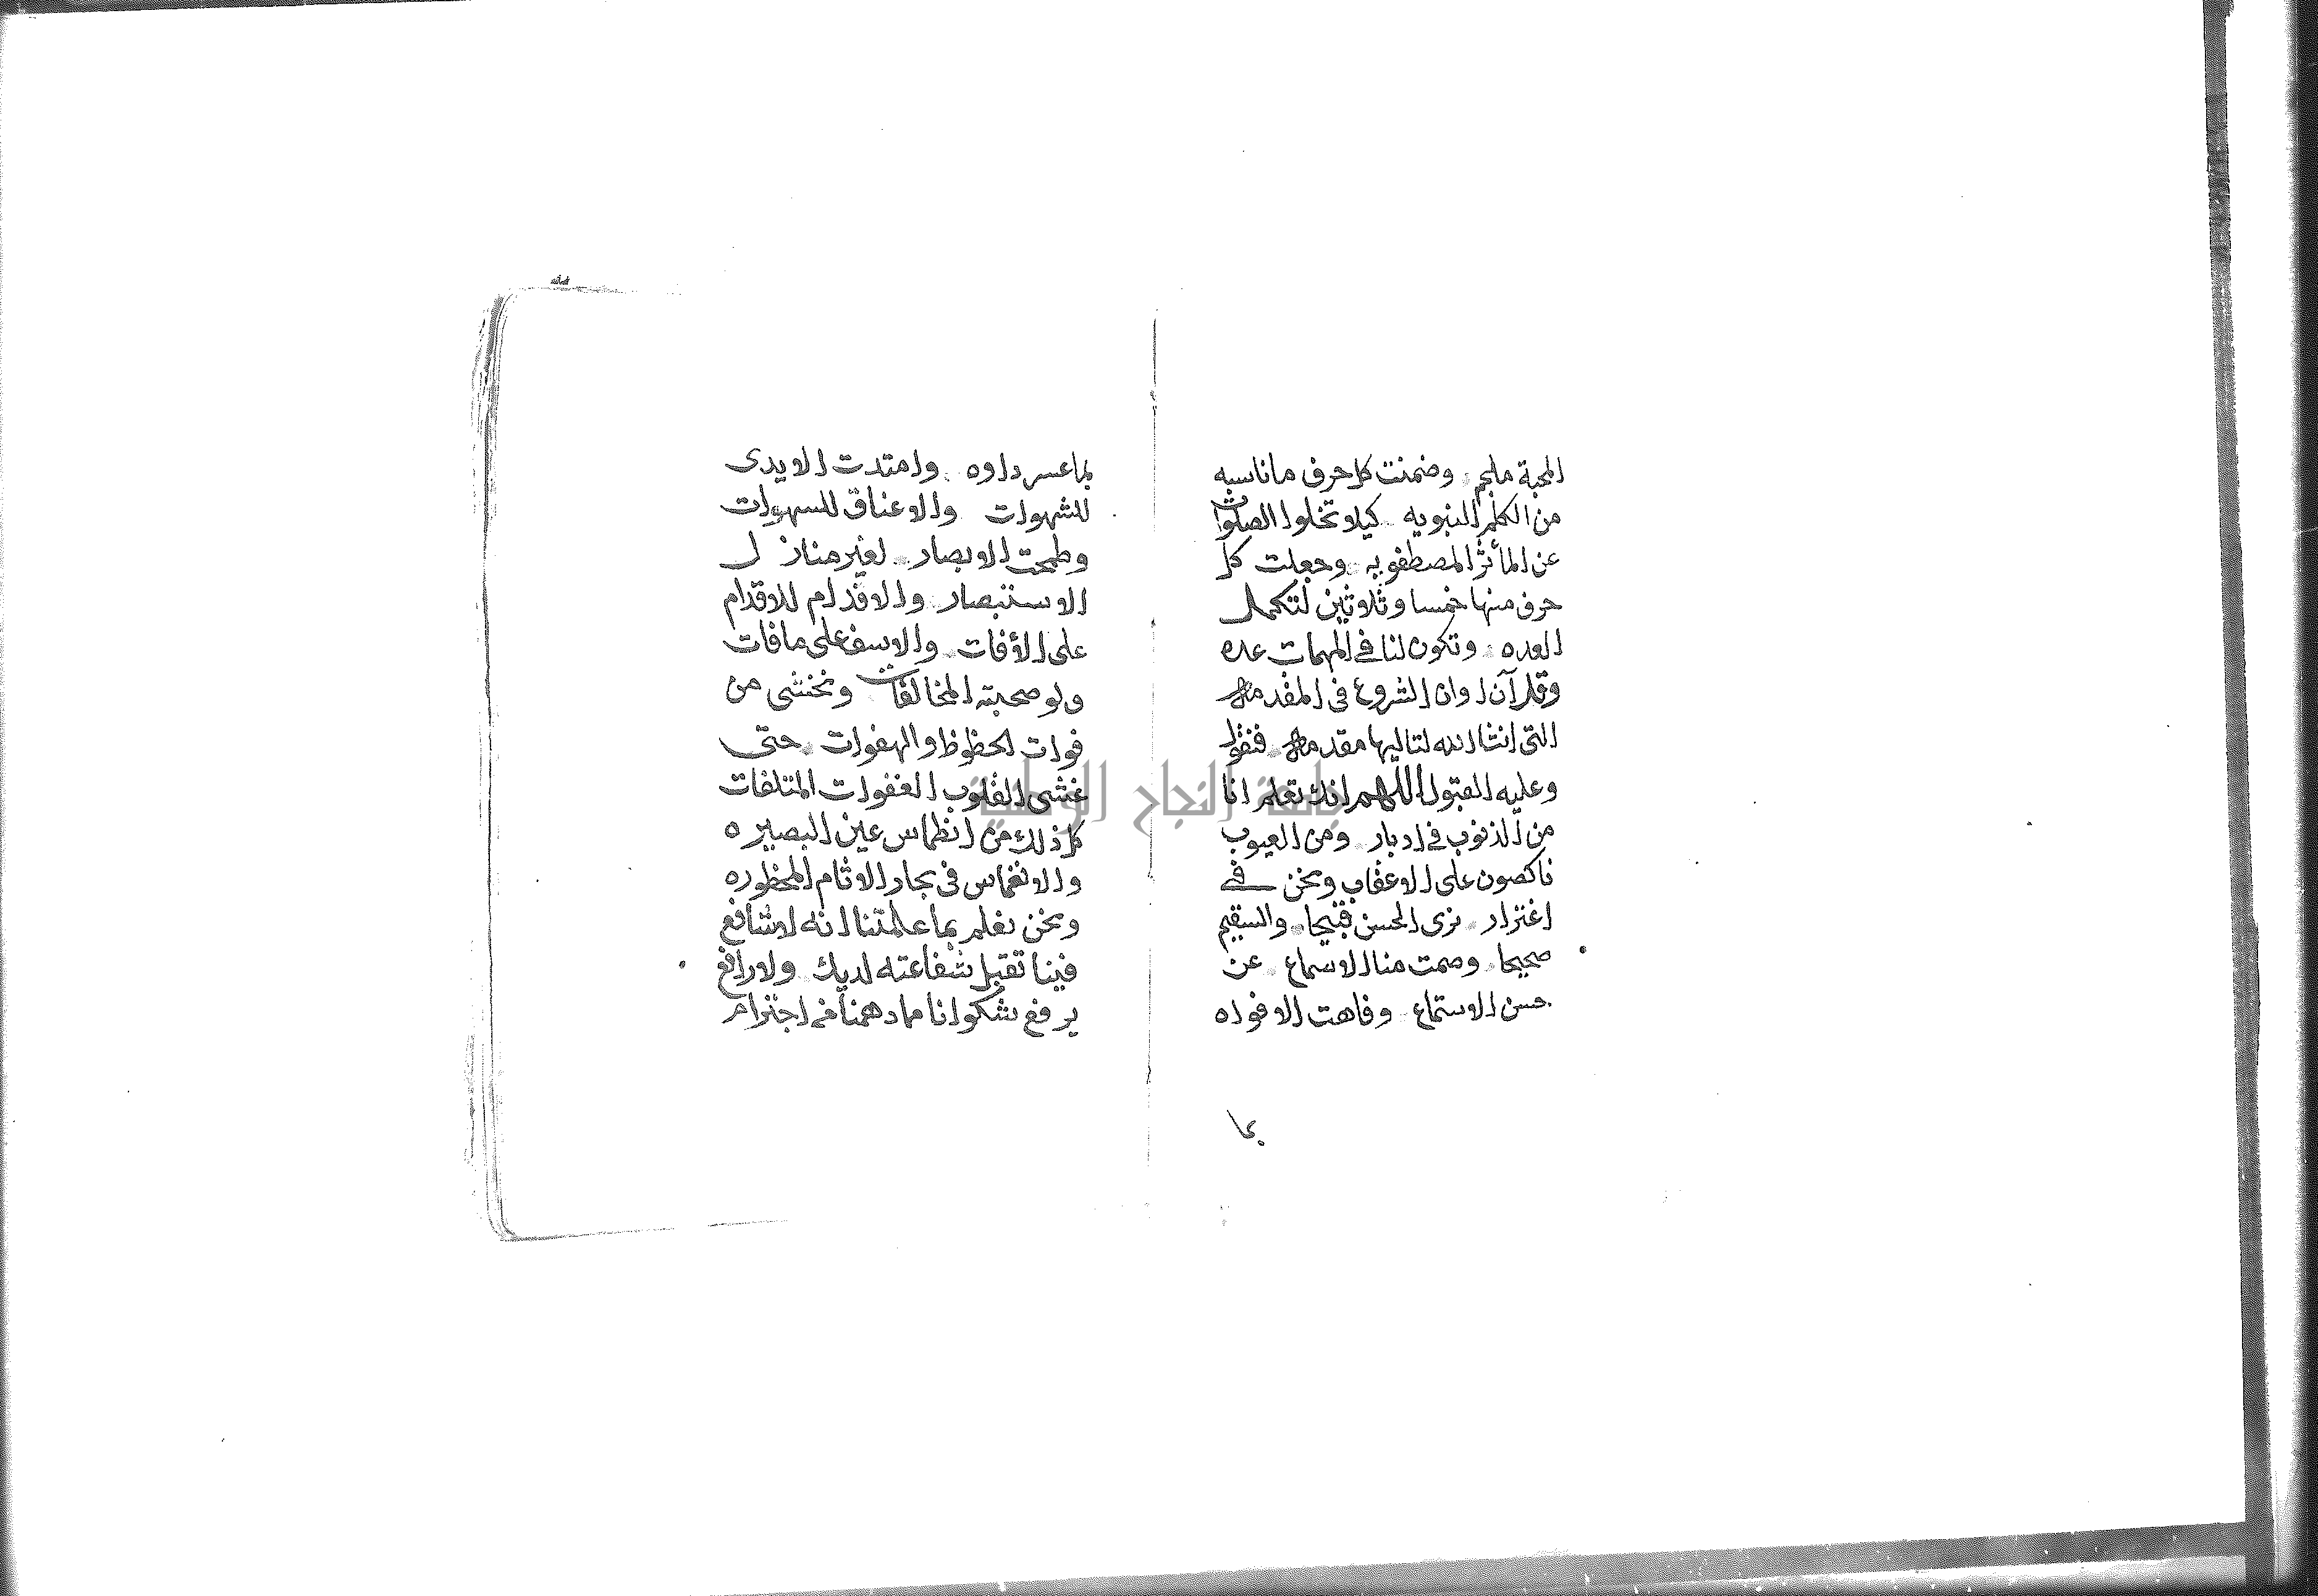 المحبة ملجم وضمنت كل حرف ما ناسبه
من الكلم النبويه كيلا تخلوا الصلوات
عن المأثر المصطفويه وجعلت كل
حرف منها خمسا وثلاثين لتكمل
العده وتكون لنا في المهمات عده
وقد آن اوان الشروع في المقدمه
التي انشا الله لتاليها مقدمه فنقول
وعليه القبول اللهم انك تعلم انا
من الذنوب في ادبار ومن العيوب
ناكصون على الاعقاب ونحن في
اغترار نرى الحسن قبيحا والسقيم
صحيحا وصمت منا الاسماع عن
حسن الاستماع وفاهت الافواه
بما
بما عسر داوه وامتدت الايدى
للشهوات والاعناق للسهوات
وطمحت الابصار لغير منازل
الاستبصار والاقدام للاقدام
على الأفات والاسف على ما فات
ولو صحبته المخالفات ونخشى من
فوات الحظوظ والهفوات حتى
غشى القلوب الغفوات المتلفات
كل ذلك من انطماس عين البصيره
والانغماس في بحار الاثام المحظوره
ونحن نعلم بما علمتنا انه لا شافع
فينا تقبل شفاعته لديك ولا رافع
يرفع شكوانا مما دهمنا في اجترام
جامعة النجاح الوطنية